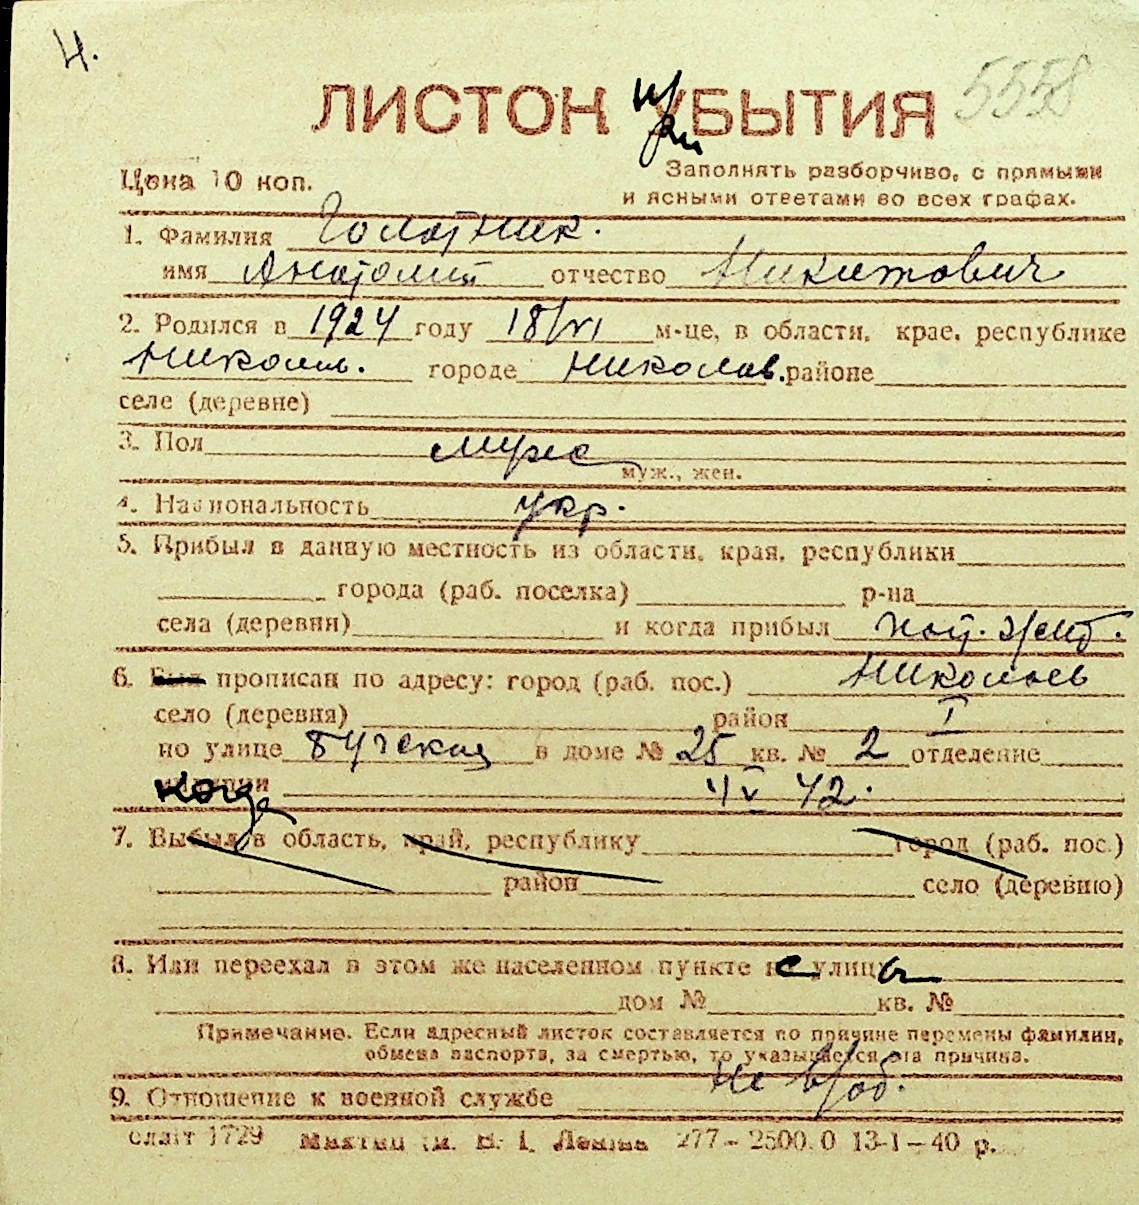 Н.
ЛИСТОК УБЫТИЯ 5558
при
Цена 10 коп.
Заполнять разборчиво, с прямыми
и ясными ответами во всех графах.
1. Фамилия Голотник.
имя Анатолий отчество Никитович
2. Родился в 1924 году 18/VI м-це, в области, крае, республике
Николаев. городе Николаев. районе
селе (деревне)
3. Пол муж
муж., жен.
4. Национальность укр.
5. Прибыл в данную местность из области, края, республики
города (раб. поселка) р-на
села (деревни) и когда прибыл пост. жит.
6. Был прописан по адресу: город (раб. пос.) Николаев
село (деревня) район I
по улице Бугская в доме № 25 кв. № 2 отделение
когда 4 V 42.
7. Выбыл в область, край, республику город (раб. пос.)
район село (деревню)
8. Или переехал в этом же населенном пункте с улицы
дом № кв. №
Примечание. Если адресный листок составляется по причине перемены фамилии,
обмена паспорта, за смертью, то указывается эта причина.
9. Отношение к военной службе не в/об.
1729 277-2500.0 13-1-40 р.